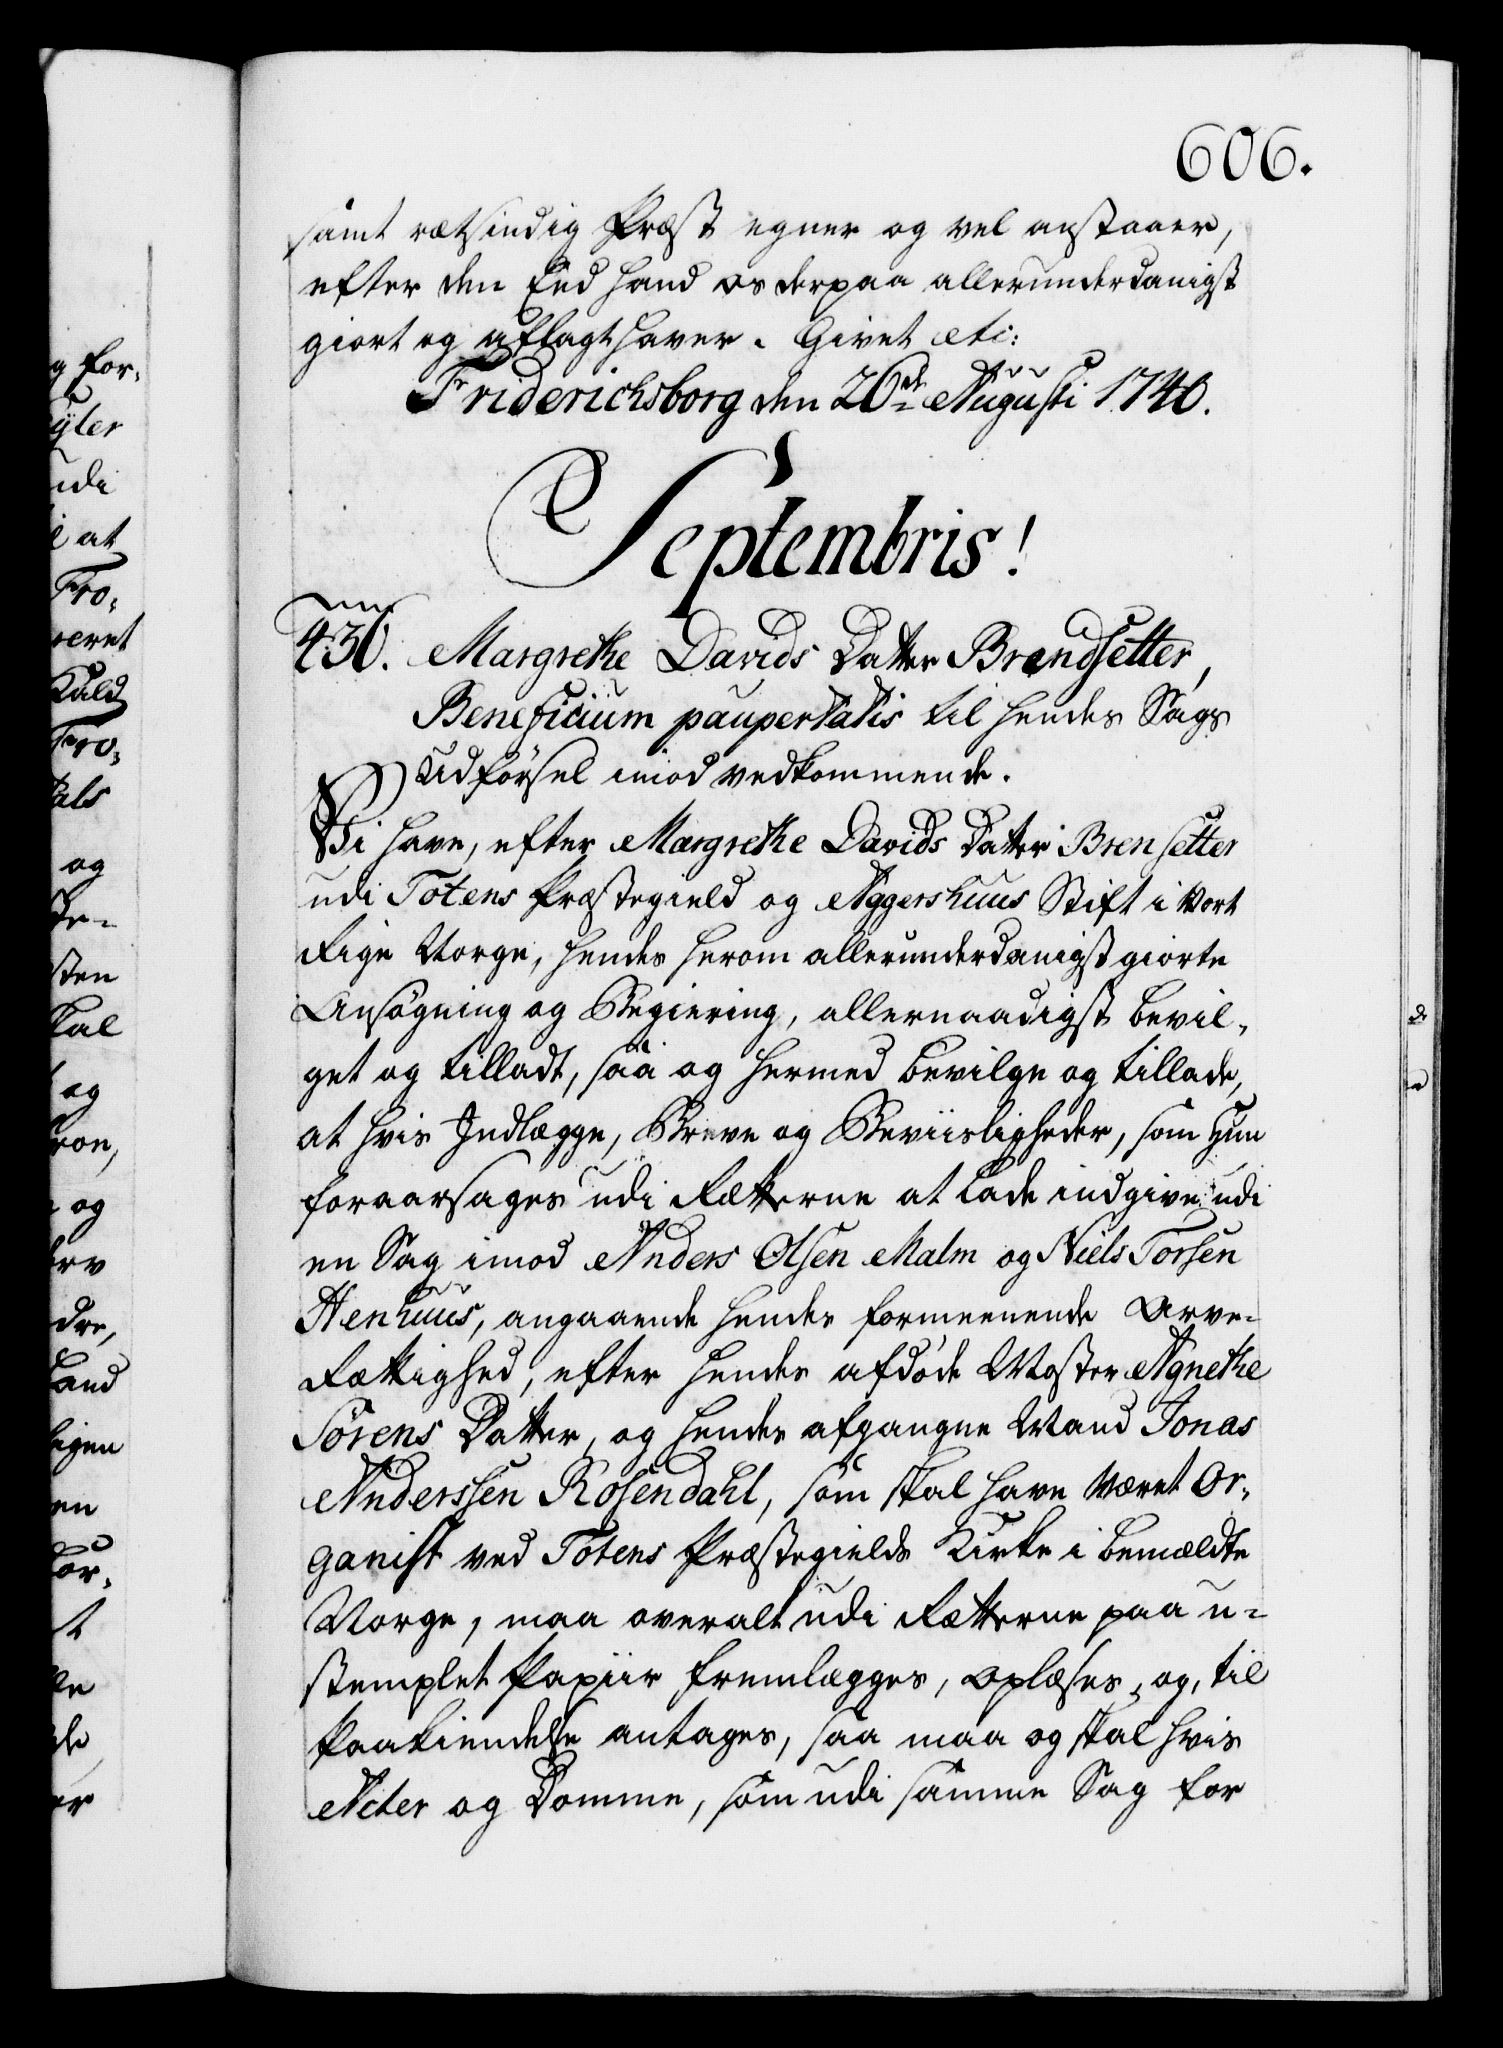 606.
samt rætsindig Præst egner og vel anstaaer,
efter den Eed hand os derpaa allerunderdanigst
giort og aflagt haver. Givet etc:
Friderichsborg den 26de Augusti 1740.
Septembris!
430. Margrethe Davids Datter Brendsetter,
Beneficium paupertatis til hendes Sags
Udførsel imod vedkommende.
Vi have, efter Margrethe Davids Datter Brensetter
udi Totens Præstegield og Aggershuus Stift i Vort
Rige Norge, hendes herom allerunderdanigst giorte
Ansøgning og Begiering, allernaadigst bevil-
get og tilladt, saa og hermed bevilge og tillade,
at hvis Indlægge, Breve og Beviisligheder, som Hun
foraarsages udi Retterne at lade indgive udi
en Sag imod Anders Olsen Malm og Niels Torsen
Henhuus, angaaende hendes formeenende Arve-
Rettighed, efter hendes afdøde Moster Agnethe
Sørens Datter, og hendes afgangne Mand Jonas
Anderssen Rosendahl, som skal have været Or-
ganist ved Totens Præstegields Kirke i bemældte
Norge, maa overalt udi Retterne paa u-
stemplet Papiir fremlægges, oplæses, og, til
Paakiendelse antages, saa maa og skal hvis
Acter og Domme, som udi samme Sag for